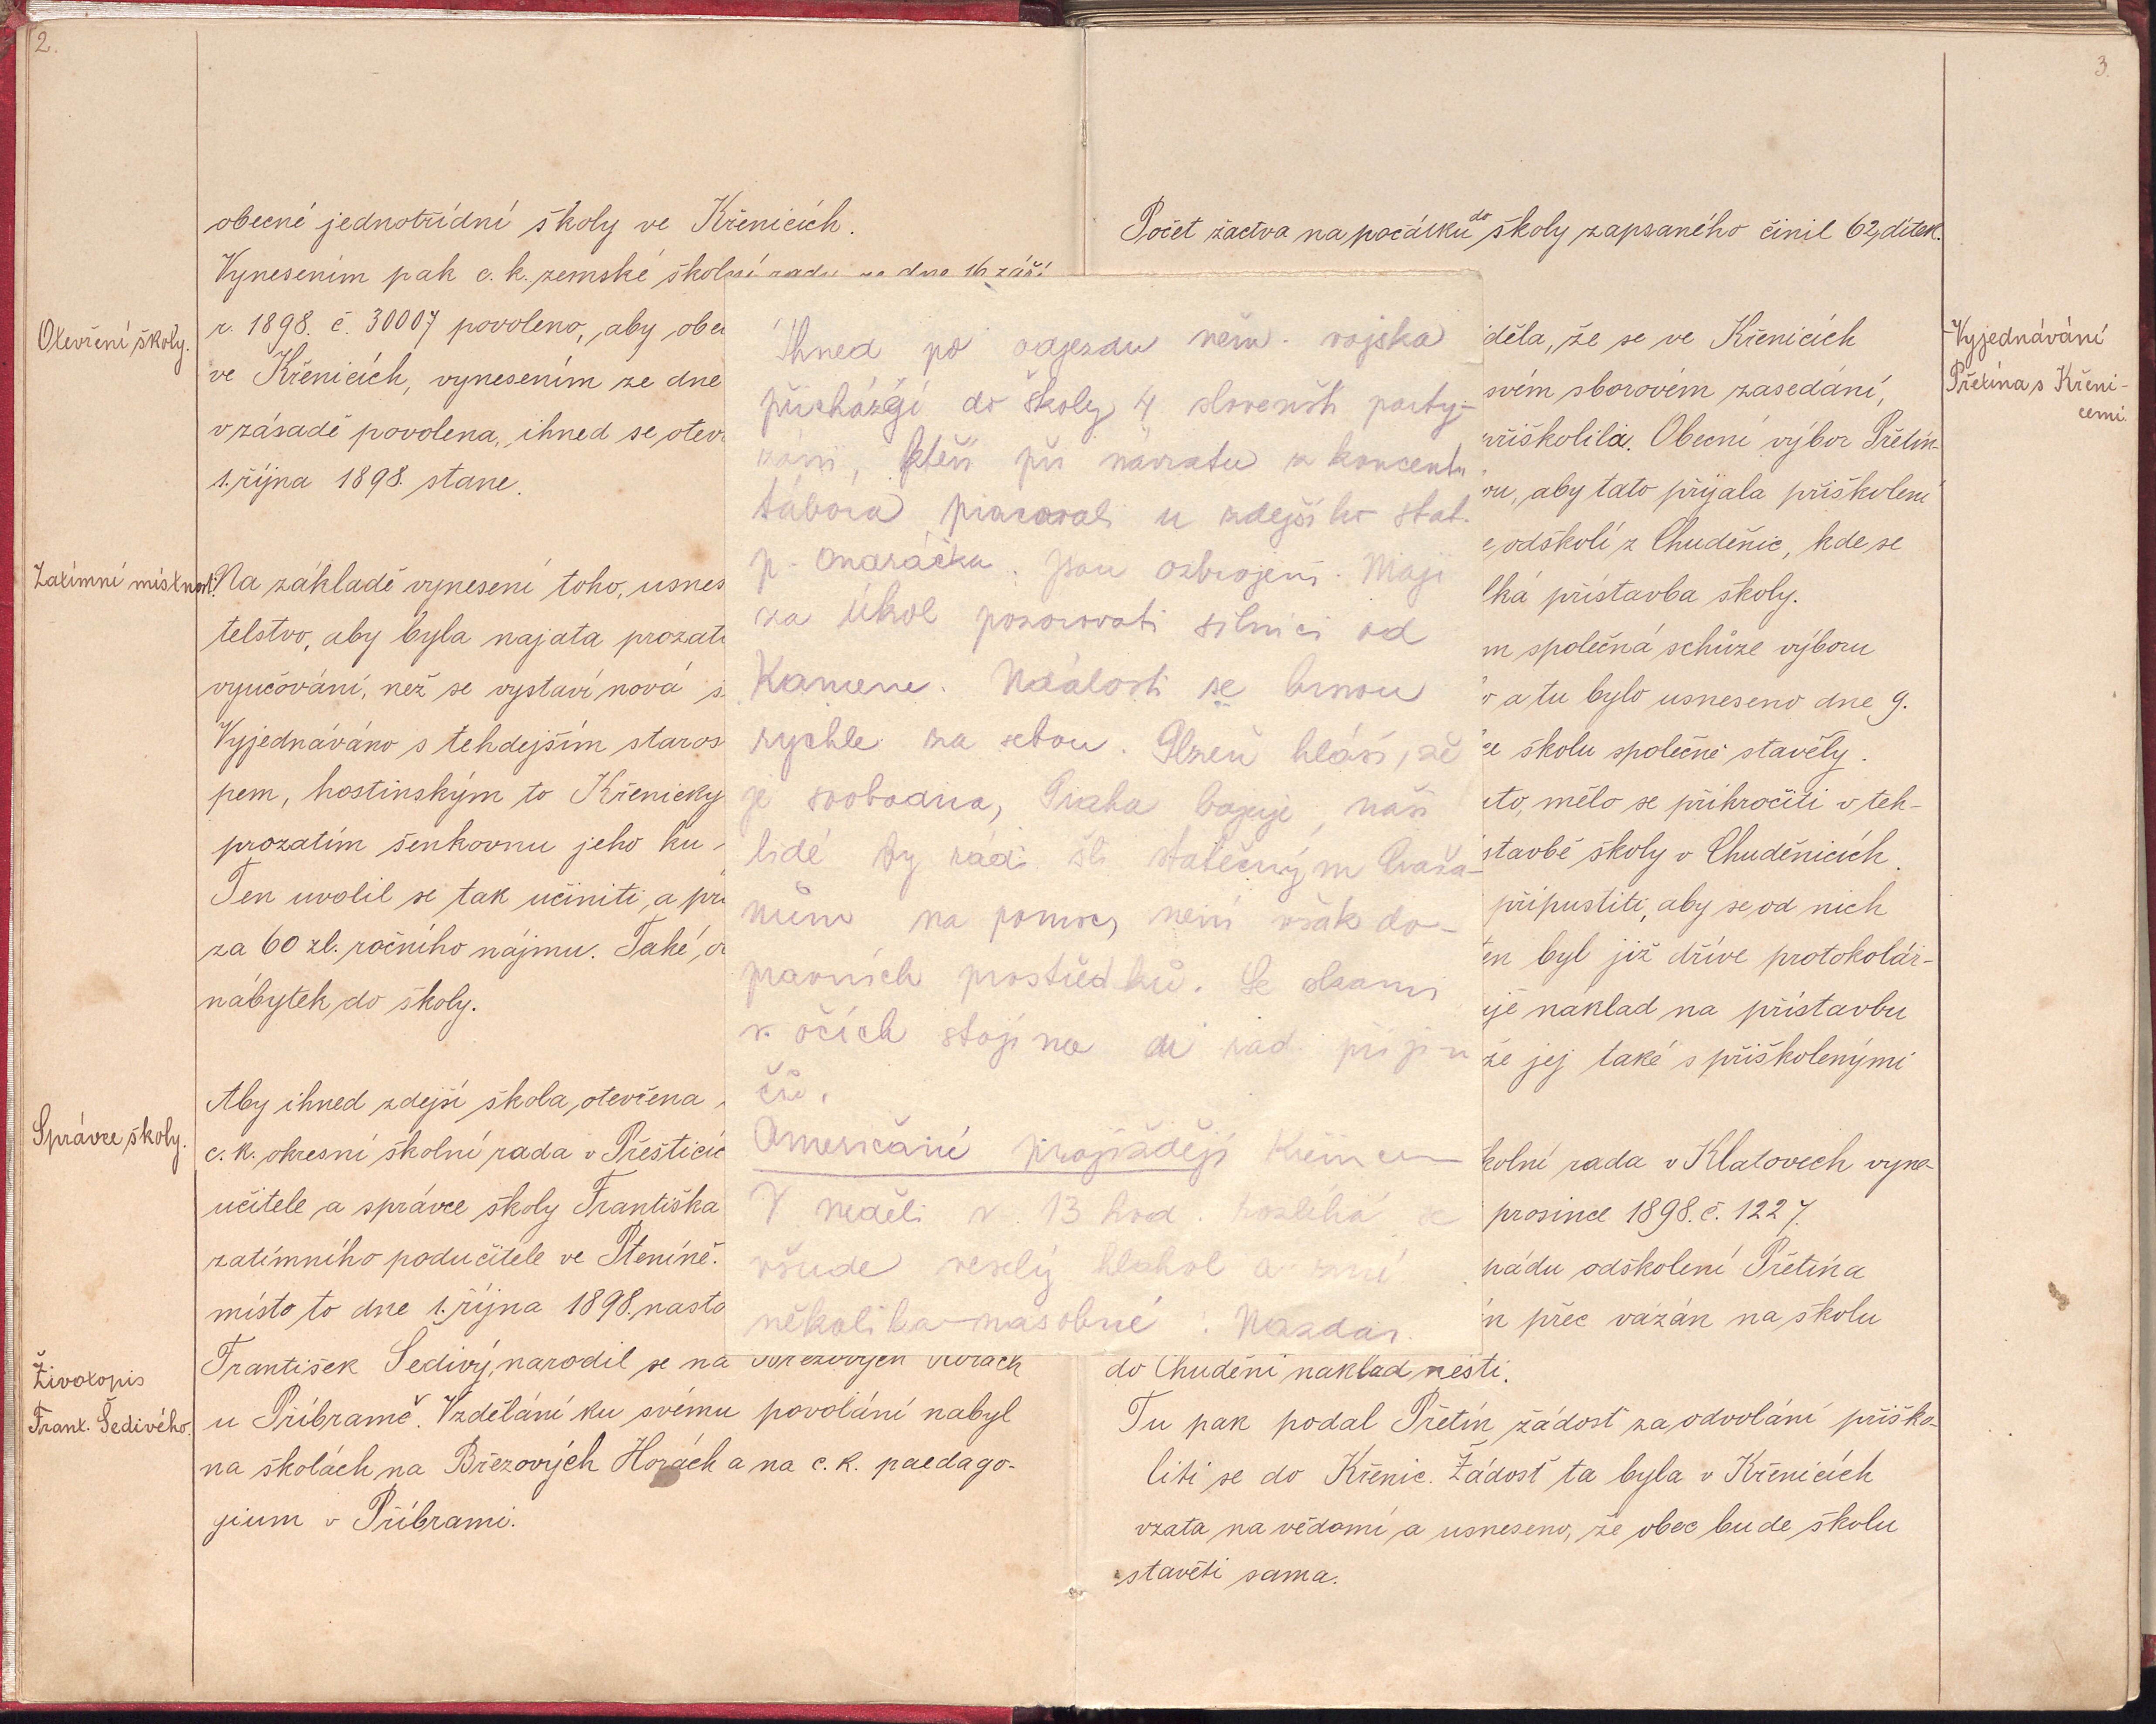 2.
obecné jednotřídní školy ve Křenicích.
Vynesením pak c. k. zemské školní rady ze dne 16 září
Otevření školy.
r. 1898. č. 30007 povoleno, aby obec
ve Křenicích, vynesením ze dne
v zásadě povolena, ihned se otev
1. října 1898. stane.
Zatímní místnost.
Na základě vynesení toho, usnes
telstvo, aby byla najata prozat
vyučování, než se vystaví nová š
Vyjednáváno s tehdejším staros
pem, hostinským to Křenicky
prozatím šenkovnu jeho ku
Ten uvolil se tak učiniti, a při
za 60 zl. ročního nájmu. Také, o
nábytek do školy.
Aby ihned zdejší škola otevřena
Správce školy.
c. k. okresní školní rada v Přešticíc
učitele a správce školy Františka
zatímního podučitele ve Pteníně.
místo to dne 1. října 1898. nasto
Životopis
Frant. Šedivého.
František Šedivý, narodil se na Březových Horách
u Příbramě. Vzdělání ku svému povolání nabyl
na školách na Březových Horách a na c. k. paedago-
gium v Příbrami.
Ihned po odjezdu něm. vojska
přicházejí do školy 4 slovenští party-
záni, kteří při návratu z koncentr
tábora pracovali u zdejšího stat.
p. Ondráčka. Jsou ozbrojeni. Mají
za úkol pozorovati silnici od
Kamene. Události se hrnou
rychle za sebou. Plzeň hlásí, že
je svobodna, Praha bojuje, naši
lidé by rádi šli statečným Praža-
nům na pomoc, není však do-
pravních prostředků. Se slzami
v očích stojíme u rad. přijí-
če.
Američané projíždějí Křenicemi
V neděli v 13 hod. rozléhá se
všude veselý hlahol a zní
několikanásobné: Nazdar.
3.
Počet žactva na počátku do školy zapsaného činil 62 dítek.
děla, že se ve Křenicích
Vyjednávání
Přetína s Křeni-
cemi.
svém sborovém zasedání,
přiškolila. Obecní výbor Přetín-
ou, aby tato přijala přiškolení
e odškolí z Chuděnic, kde se
lká přístavba školy.
m společná schůze výboru
o a tu bylo usneseno dne 9.
ce školu společně stavěly.
eto, mělo se přikročiti v teh-
stavbě školy v Chuděnicích.
připustiti, aby se od nich
en byl již dříve protokolár-
uje náklad na přístavbu
že jej také s přiškolenými
kolní rada v Klatovech vyne-
prosince 1898. č. 1227.
pádu odškolení Přetína
n přec vázán na školu
do Chuděni náklad nésti.
Tu pak podal Přetín žádost za odvolání přiško-
liti se do Křenic. Žádost ta byla v Křenicích
vzata na vědomí a usneseno, že obec bude školu
stavěti sama.